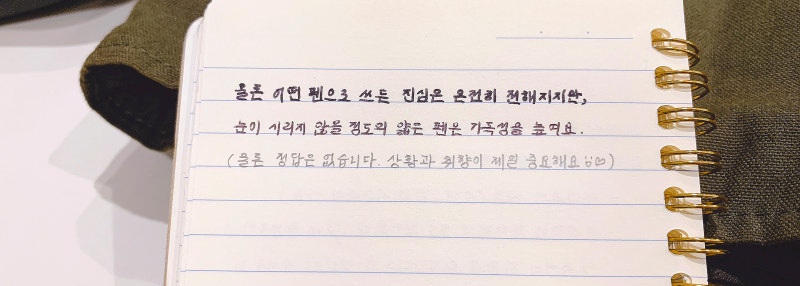 물론 어떤 펜으로 쓰든 진심은 온전히 전해지지만,
눈이 시리지 않을 정도의 얇은 펜은 가독성을 높여요.
(물론 정답은 없습니다. 상황과 취향이 제일 중요해요 ♡)